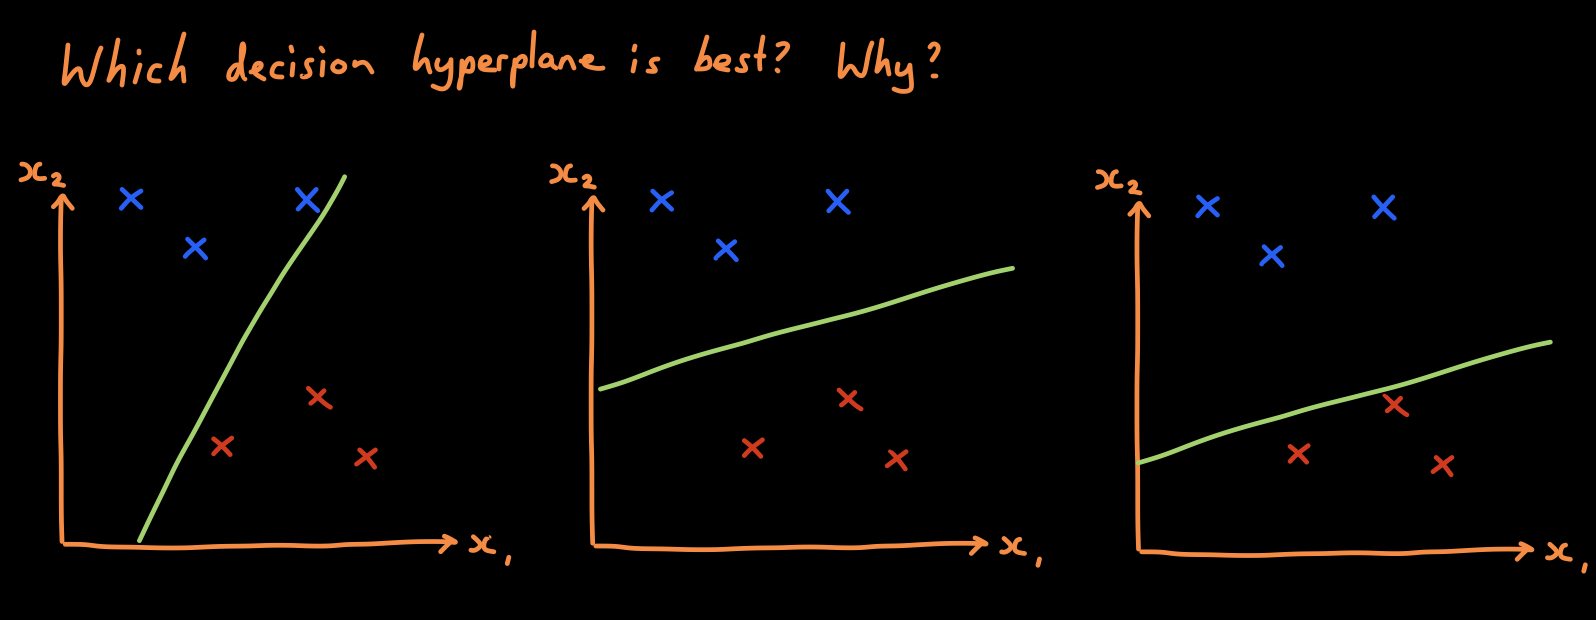 Which decision hyperplane is best? Why?
x₂ x₂ x₂
x₁ x₁ x₁